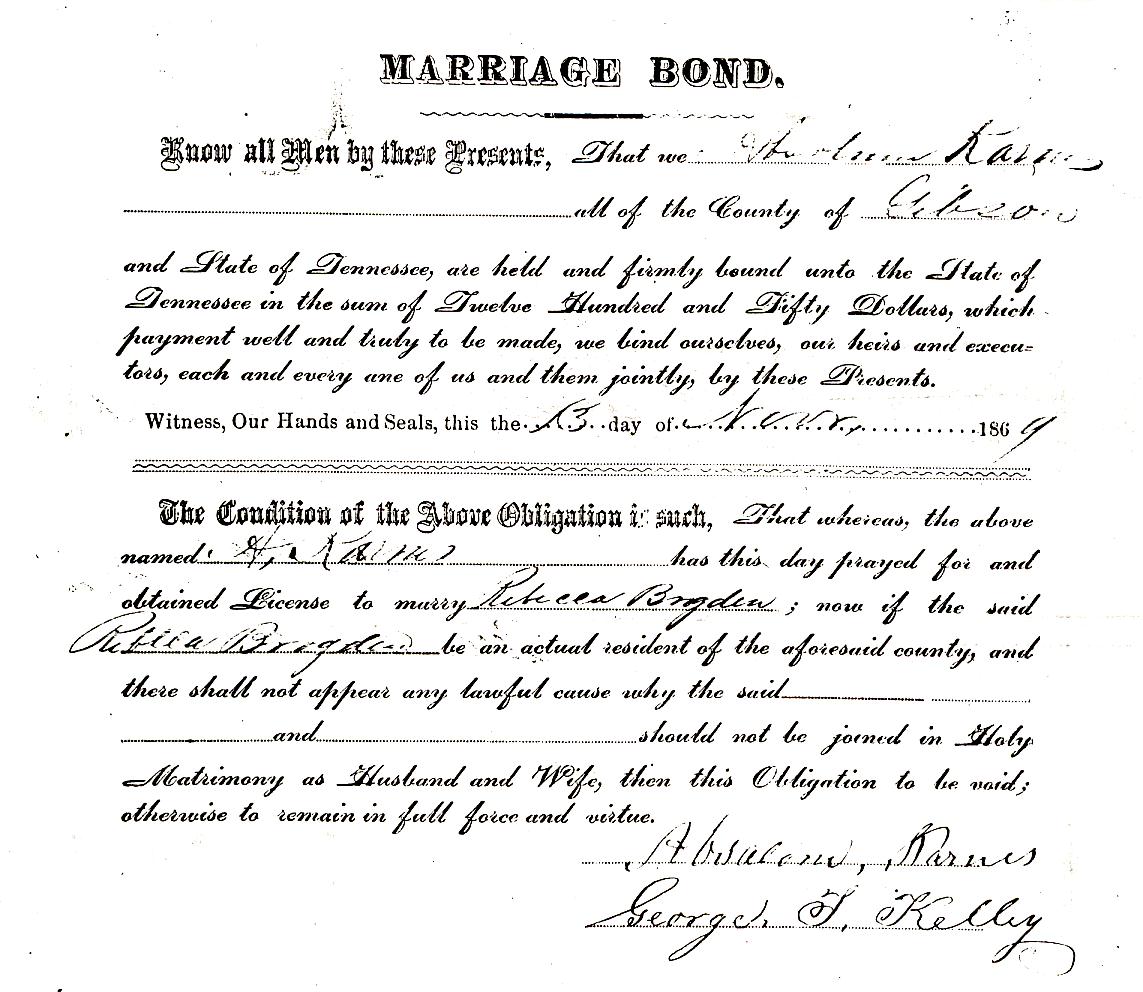 MARRIAGE BOND.
Know all Men by these Presents, That we Absolum Karnes
all of the County of Gibson
and State of Tennessee, are held and firmly bound unto the State of
Tennessee in the sum of Twelve Hundred and Fifty Dollars, which
payment well and truly to be made, we bind ourselves, our heirs and execu=
tors, each and every one of us and them jointly, by these Presents.
Witness, Our Hands and Seals, this the 13 day of Nov. 1869
The Condition of the Above Obligation is such, That whereas, the above
named A. Karnes has this day prayed for and
obtained License to marry Rebecca Brogden ; now if the said
Rebecca Brogden be an actual resident of the aforesaid county, and
there shall not appear any lawful cause why the said
and should not be joined in Holy
Matrimony as Husband and Wife, then this Obligation to be void;
otherwise to remain in full force and virtue.
Absalom, Karnes
George. T. Kelley